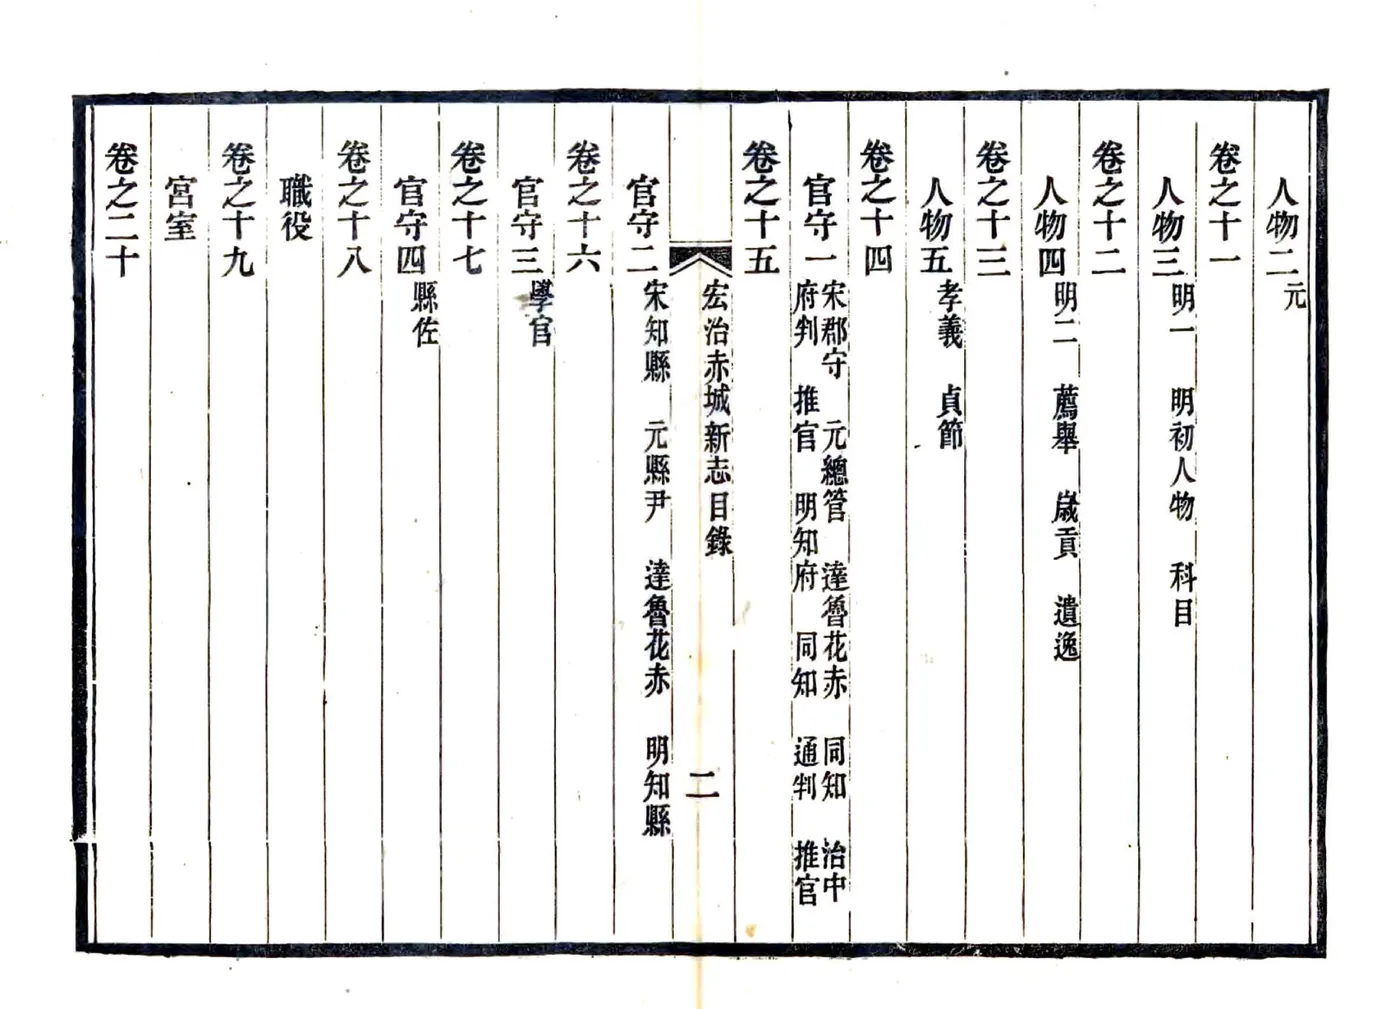 人物二 元
卷之十一
人物三 明一 明初人物 科目
卷之十二
人物四 明二 薦舉 歲貢 遺逸
卷之十三
人物五 孝義 貞節
卷之十四
官守一 宋郡守 元總管 達魯花赤 同知 治中
府判 推官 明知府 同知 通判 推官
卷之十五
宏治赤城新志目錄 二
官守二 宋知縣 元縣尹 達魯花赤 明知縣
卷之十六
官守三 學官
卷之十七
官守四 縣佐
卷之十八
職役
卷之十九
宮室
卷之二十